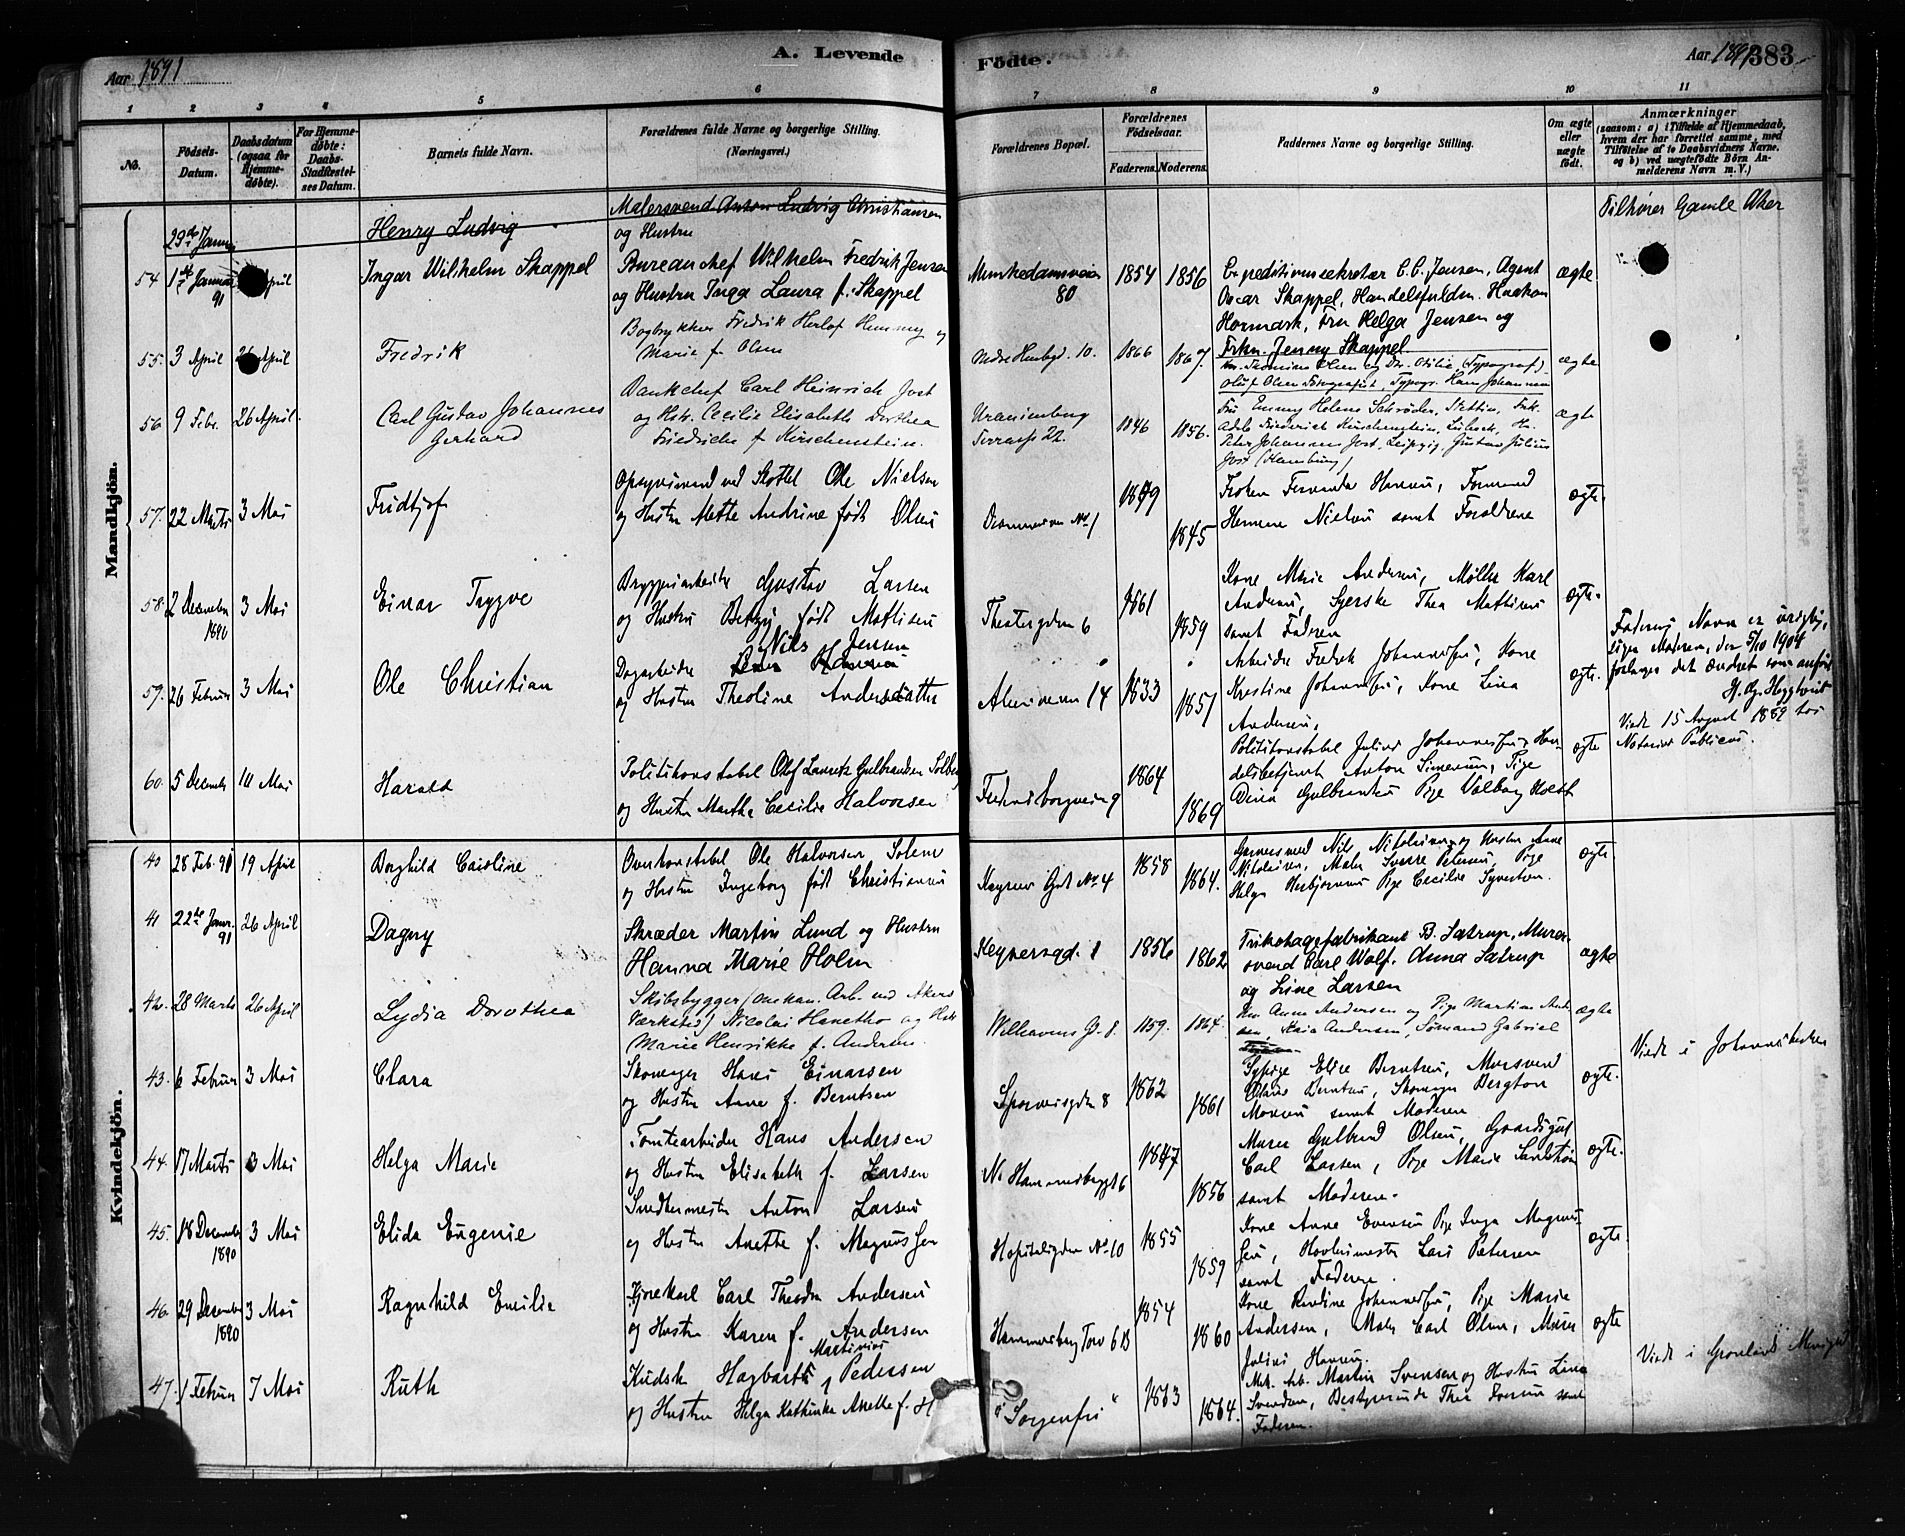 Aar 1891
A. Levende
Fødte.
Aar 1891
383
1 2 3 4 5 6 7 8 9 10 11
No.
Fødsels-Datum.
Daabsdatum (ogsaa for Hjemmedøbte).
For Hjemmedøbte: Daabs-Stadfæstelses Datum.
Barnets fulde Navn.
Forældrenes fulde Navne og borgerlige Stilling. (Næringsvei.)
Forældrenes Bopæl.
Forældrenes Fødselsaar.
Faderens.
Moderens.
Faddernes Navne og borgerlige Stilling.
Om ægte eller uægte født.
Anmærkninger
(saasom: a) i Tilfælde af Hjemmedaab, hvem der har forrettet samme, med Tilføielse af to Daabsvidners Navne. og b) ved uægtefødte Børn Anmelderens Navn m. V.)
Mandkjön.
29de Januar Henry Ludvig Malersvend Anton Ludvig Christiansen
og Hustru
Tilhører Gamle Aker
54 1ste Januar 91 April Ingar Wilhelm Skappel Bureauchef Wilhelm Fredrik Jensen
og Hustru Inga Laura f. Skappel
Munkedamsveien 80 1854 1856
Expeditionssekretær C. C. Jensen, Agent
Oscar Skappel, Handelsfuldm. Haakon
Hormark, Fru Helga Jensen og
Frkn. Jenny Skappel
ægte
55. 3 April 26 April Fredrik Bogtrykker Fredrik Herlof Henning og
Marie f. Olsen
10. 1866 1867.
Olsen og Otilie (Typograf)
Oluf Olsen Typogr. Hans Johannesen
ægte
56 9 Febr. 26 April. Carl Gustav Johannes
Gerhard
Bankchef Carl Heinrich Jost
og Hstr. Cecilie Elisabeth Dorthea
Friedriche f. Kirschenstein.
Uranienborg
Terrasse 22. 1846 1856.
Fru Emmy Helene Schrøder, Stettin, Frk.
Adele Friederich Kirschenstein, Lübeck, Hr.
Peter Johannes Jost, Leipzig, Gustav Julius
Jost (Hamburg)
ægte
57. 22 Marts 3 Mai Fridtjof Opsynsmand ved Slottet Ole Nielsen
og Hustru Mette Andrine født Olsen
Drammensvn No. 1 1849 1845
Frøken Hansen, Formand
Herman Nielsen samt Forældrene
ægte.
58. 2 December 1890 3 Mai Einar Trygve Bryggeriarbeider Gustav Larsen
og Hustru Betzy født Mathisen
Theatergden 6 1861 1859
Kone Marie Andersen, Møller Karl
Andersen, Syerske Thea Mathisen
samt Faderen
ægte.
59. 26 Februar 3 Mai Ole Christian Nils Jensen
Dagarbeider
og Hustru Theoline Andersdatter
14 1833 1857
Arbeider Fredrik Johannessen, Kone
Kristine Johannessen, Kone Lina
Andersen,
ægte.
Faderens Navn er urigtig,
siger Moderen, der 5/10 1904
forlanger det ændret som anført
Viede 15 August 1889 hos
Notarius Publicus.
60. 5 December 10 Mai Harald Politikonstabel Olof Lauritz Gulbrandsen Solberg
og Hustru Marthe Cecilie Halvorsen
Fredensborgveien 9 1864 1869
Politikonstabel Julius Johannessen, Han-
delsbetjent Anton Simensen, Pige
Dina Gulbrandsen Pige Valborg Holst
ægte
Kvindekjön.
40 28 Feb. 91 19 April Borghild Caroline Overkonstabel Ole Halvorsen Solem
og Hustru Ingeborg født Christiansen
Keysers Gd No. 4 1858 1864.
Nils Nikolaisen og Hustru Anne
Nikolaisen, Maler Sverre Petersen, Pige
Helga Herbjørnsen Pige Cecilie Syvertsen.
ægte.
41 22de Januar 91 26 April Dagny Skræder Martin Lund og Hustru
Hanna Marie Holm
Keysersgd. 1 1856 1862
Trikotagefabrikant B. Satrup, Murer-
svend Carl Wolf. Anna Satrup
og Line Larsen
ægte
42. 28 Marts 26 April Lydia Dorothea Skibsbygger (mekan. Arb. ved Akers
Værksted) Nicolai Hanetho og Hstr.
Marie Henrikke f. Andersen.
Welhavens G. 8. 1859. 1864.
Anna Andersen og Pige Martine And-
sen, Kaia Andersen, Sømand Gabriel
ægte
43. 6 Februar 3 Mai Clara Skomager Hans Einarsen
og Hustru Anne f. Berntsen
Sporveisgden 8 1862 1861
Sypige Elise Berntsen, Mursvend
Berntsen, Skomager Bergton
Monsen samt Moderen
ægte.
Viede i Johanneskirken
44. 17 Marts 3 Mai Helga Marie Tomtearbeider Hans Andersen
og Hustru Elisabeth f. Larsen
No Hammersbggt 6 1847 1856
Murer Gulbrand Olsen, Gaardsgut
Carl Larsen, Pige Marie
samt Moderen.
ægte.
45. 18 December 1890 3 Mai Elida Eugenie Smedmester Anton Larsen
og Hustru Anette f. Magnussen
Hospitalsgden No. 10 1855 1859
Kone Anne Evensen Pige Inga Magnus-
sen, Hovslmester Lars Petersen
samt Faderen.
ægte.
46. 29 December 1890 3 Mai Ragnhild Emilie Kjørekarl Carl Theodor Andersen
og Hustru Karen f. Andersen
Hammersborg Torv 6 B 1854 1860
Kone Johannessen, Pige Marie
Andersen, Maler Carl Olsen, Murer
Julius Hansen.
ægte
47. 1 Februar 7 Mai Ruth Martinius
Kudsk Hagbarth Pedersen
og Hustru Helga Kathinka Anette f. H
"Sorgenfri" 1863 1864.
Mek. Arb. Martin Svensen og Hustru Lina
Svendsen, Bestyrerinde Thea Iversen samt
Faderen.
Viede i Grønlands Menighed